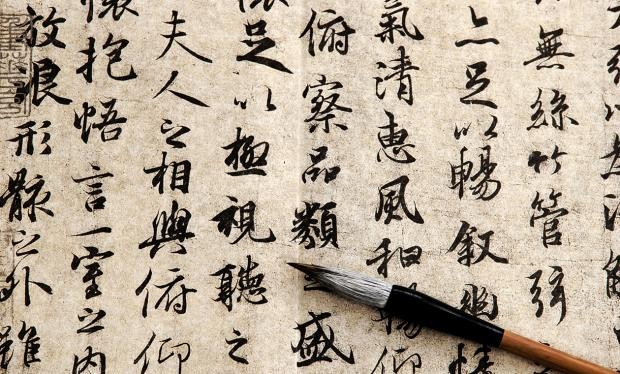 以為流觴
無絲竹管弦
亦足以暢敘幽情
氣清惠風和暢仰
俯察品類之盛
懷足以極視聽之
夫人之相與俯仰
懷抱悟言一室之內
放浪形骸之外雖